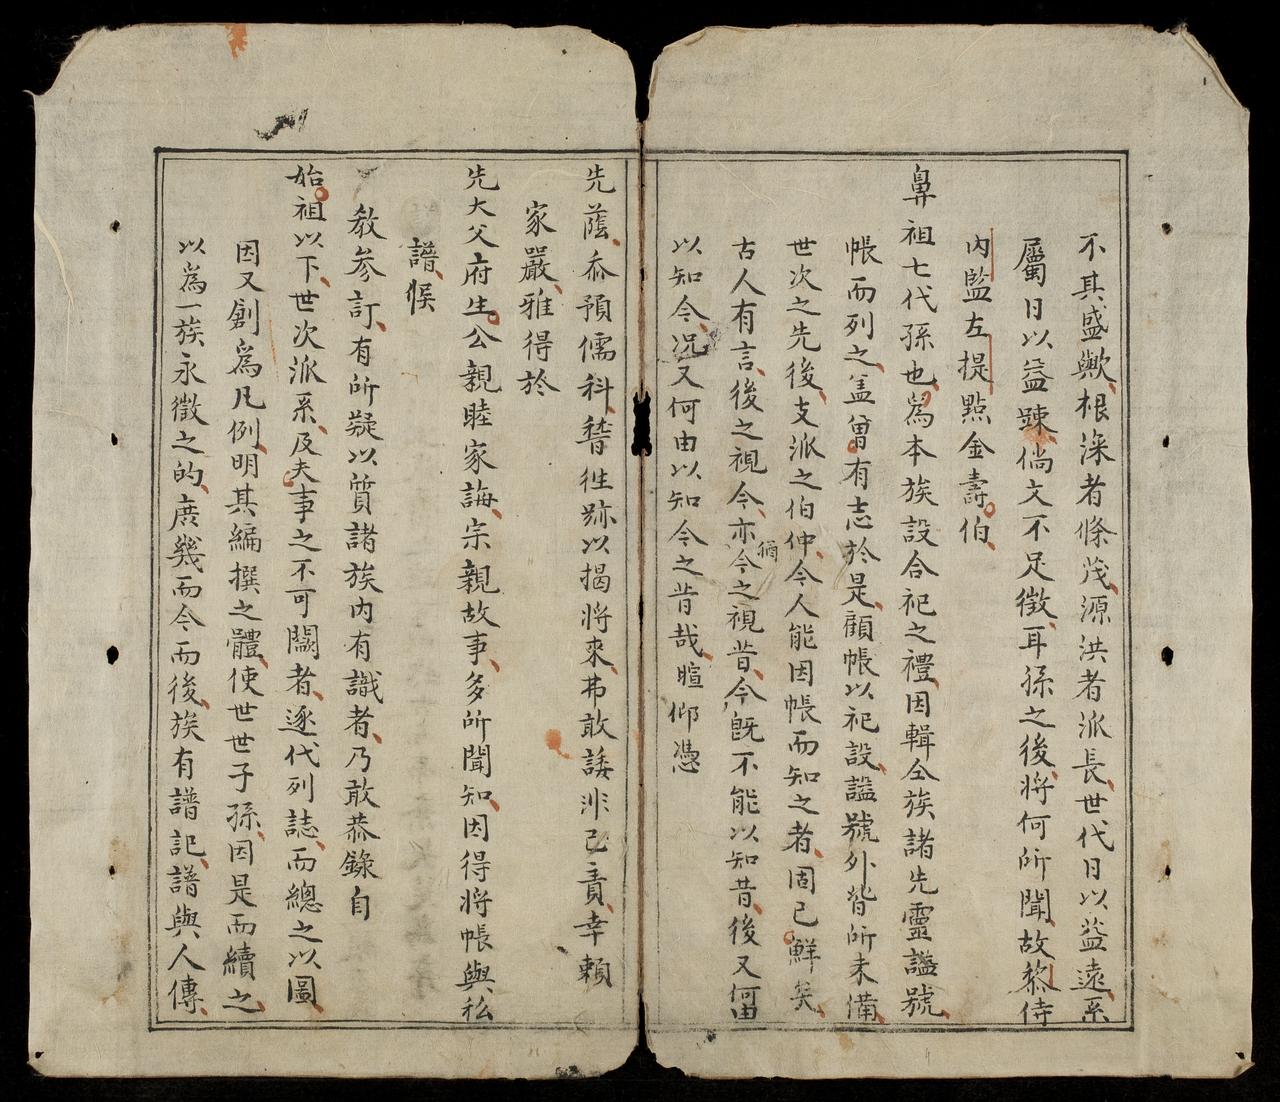 不其盛歟根深者條茂源洪者派長世代日以益遠系
屬日以益踈倘文不足徵耳孫之後將何所聞故黎侍
內監左提點金壽伯
鼻祖七代孫也爲本族設合祀之禮因輯仝族諸先靈謚號
帳而列之盖曾有志於是顧帳以祀設謚號外皆所未備
世次之先後支派之伯仲今人能因帳而知之者固已鮮矣
古人有言後之視今亦猶今之視昔今旣不能以知昔後又何由
以知今况又何由以知今之昔哉暄仰憑
先蔭忝預儒科稽徃跡以揭將來弗敢諉非己責幸賴
家嚴雅得於
先大父府生公親睦家誨宗親故事多所聞知因得將帳與私
譜候
教参訂有所疑以質諸族內有識者乃敢恭錄自
始祖以下世次派系及夫事之不可闕者逐代列誌而總之以圖
因又創爲凡例明其編撰之體使世世子孫因是而續之
以爲一族永徵之的庶幾而今而後族有譜記譜與人傳